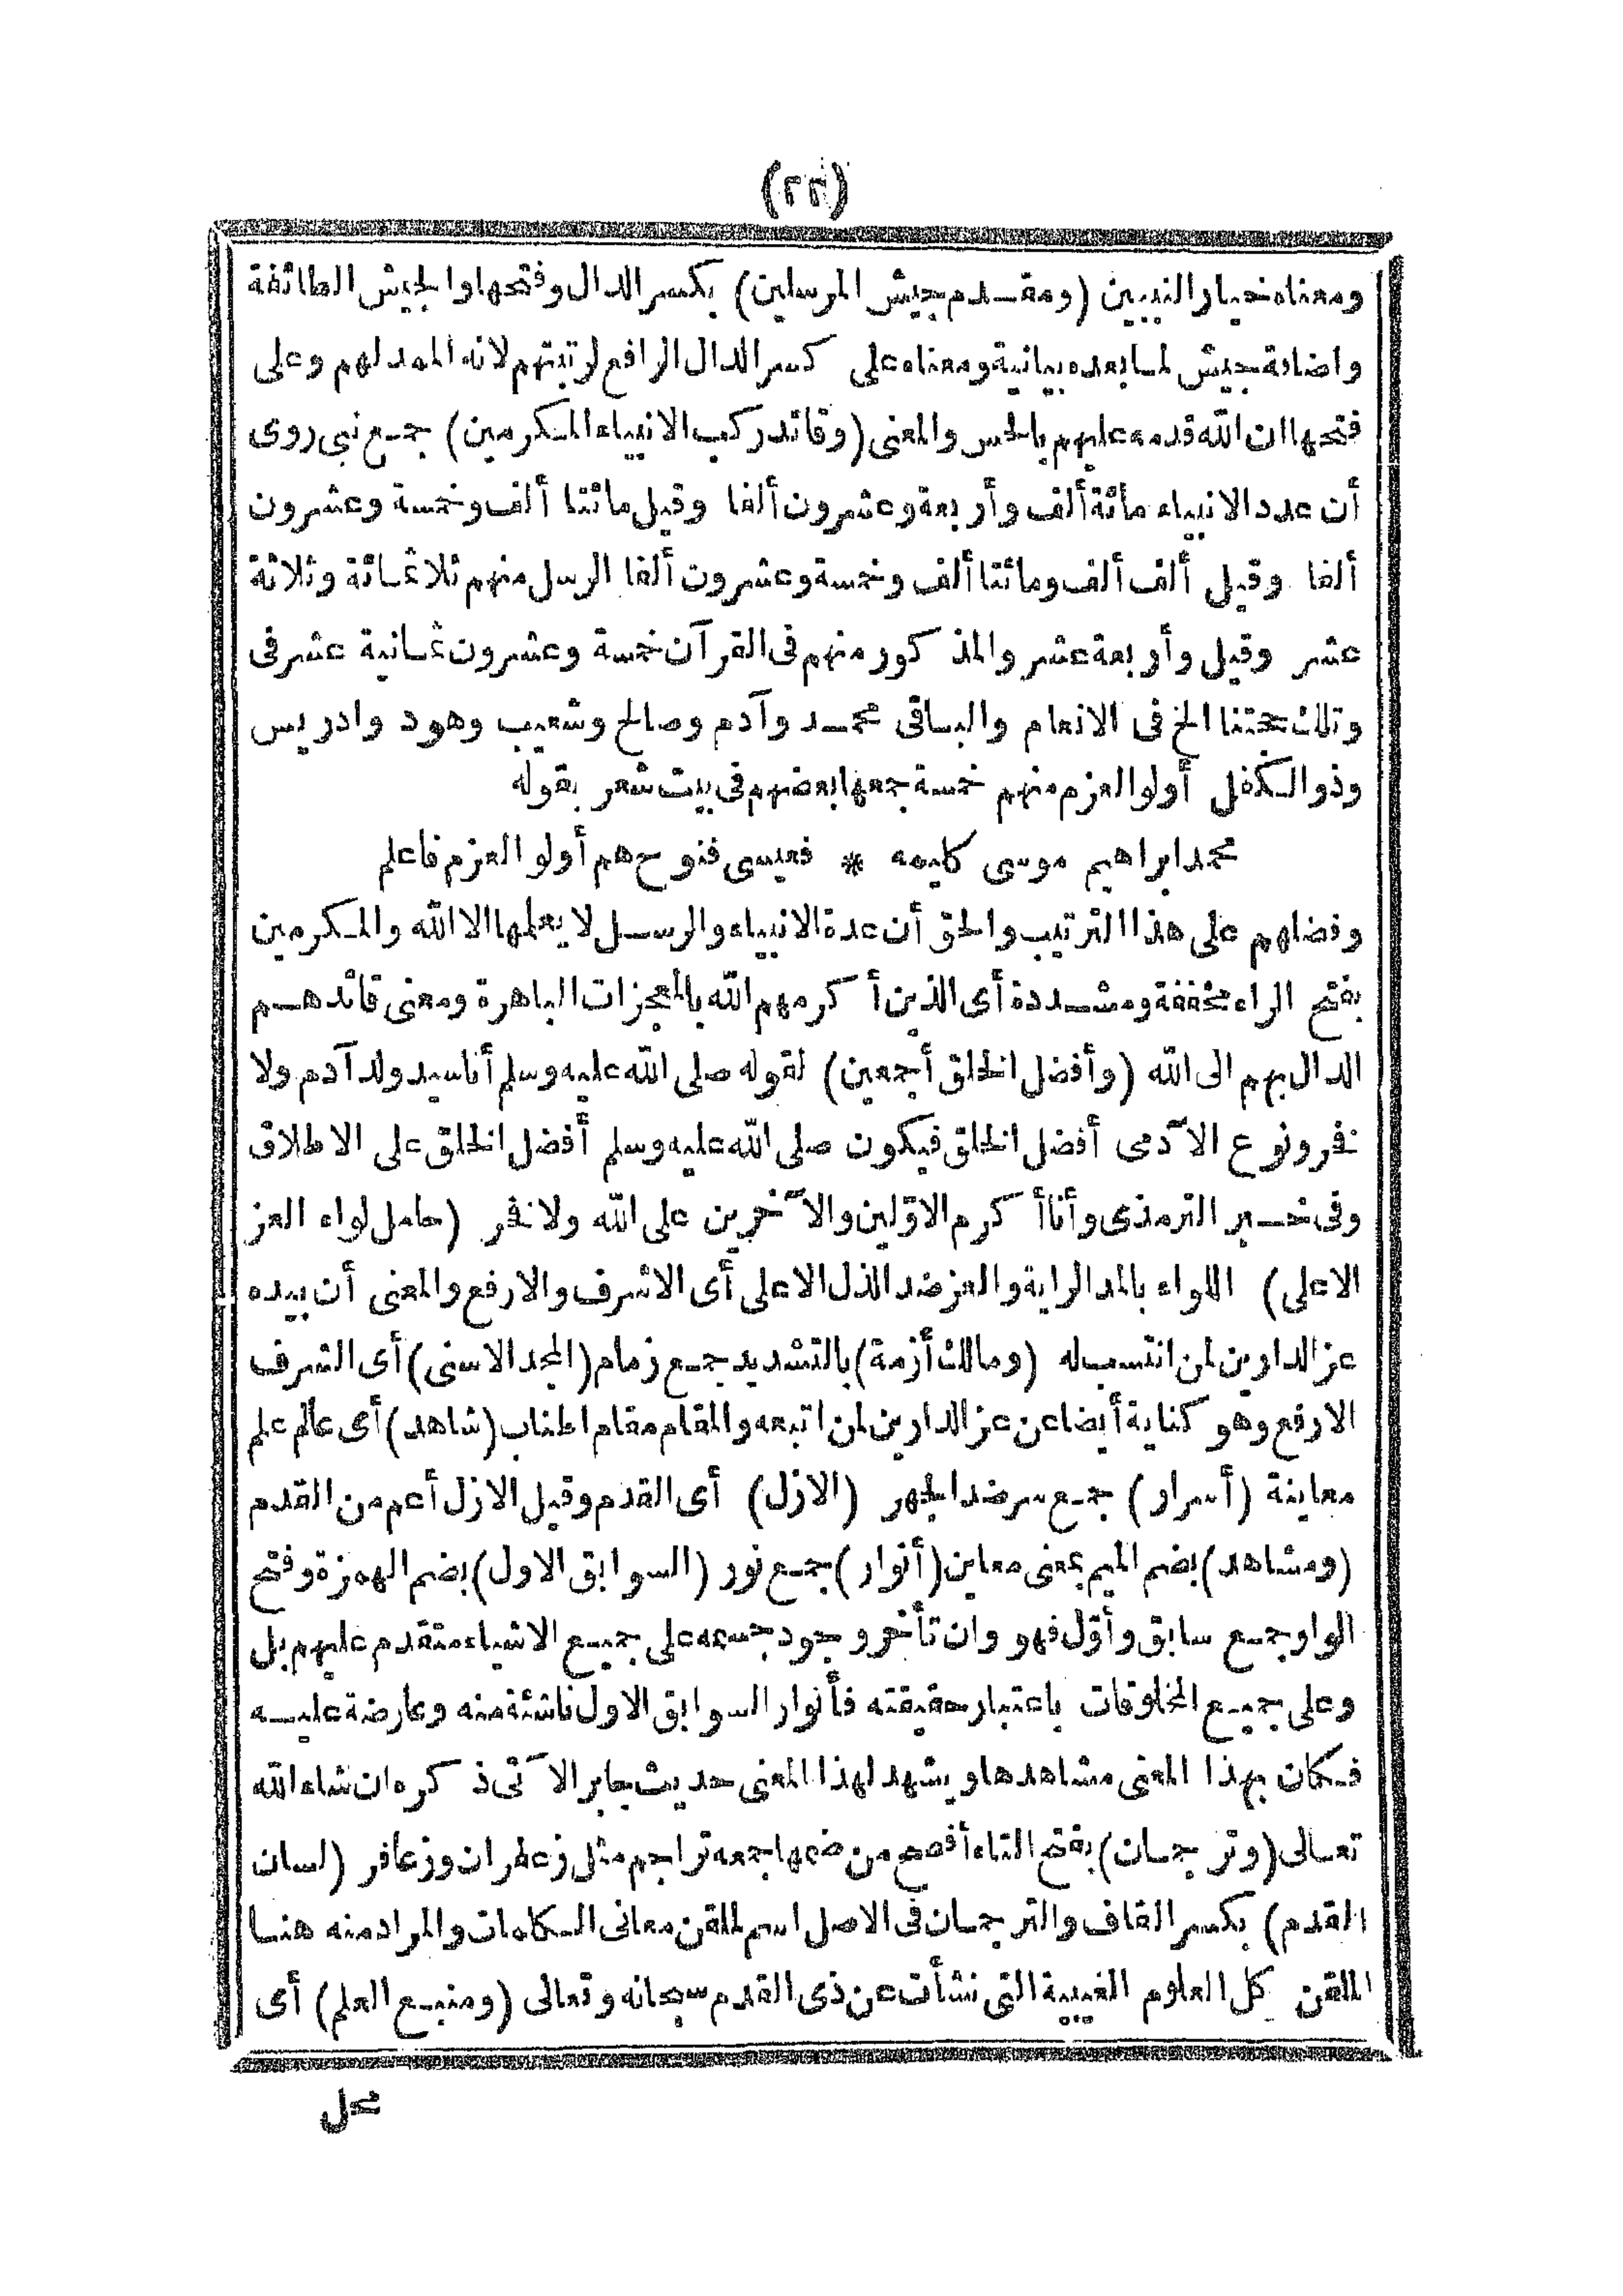 (٢٢)
ومعناه خيار النبيين (ومقدم جيش المرسلين) بكسر الدال وفتحها والجيش الطائفة
واضافة جيش لما بعده بيانية ومعناه على كسر الدال الرافع لرتبتهم لانه الممد لهم وعلى
فتحها ان الله قدمه عليهم بالحس والمعنى (وقائد ركب الانبياء المكرمين) جمع نبى روى
أن عدد الانبياء مائة ألف وأربعة وعشرون ألفا وقيل مائتا ألف وخمسة وعشرون
ألفا وقيل ألف ألف ومائتا ألف وخمسة وعشرون ألفا الرسل منهم ثلاثمائة وثلاثة
عشر وقيل وأربعة عشر والمذكور منهم فى القرآن خمسة وعشرون ثمانية عشر فى
وتلك حجتنا الخ فى الانعام والباقى محمد وآدم وصالح وشعيب وهود وادريس
وذو الكفل أولو العزم منهم خمسة جمعها بعضهم فى بيت شعر بقوله
محمد ابراهيم موسى كليمه * فعيسى فنوح هم أولو العزم فاعلم
وفضلهم على هذا الترتيب والحق أن عدة الانبياء والرسل لا يعلمها الا الله والمكرمين
بفتح الراء مخففة ومشددة أى الذين أكرمهم الله بالمعجزات الباهرة ومعنى قائدهم
الدال بهم الى الله (وأفضل الخلق أجمعين) لقوله صلى الله عليه وسلم أنا سيد ولد آدم ولا
فخر ونوع الآدمى أفضل الخلق فيكون صلى الله عليه وسلم أفضل الخلق على الاطلاق
وفى خبر الترمذى وأنا أكرم الاوّلين والآخرين على الله ولا فخر (حامل لواء العز
الاعلى) اللواء بالمد الراية والعز ضد الذل الاعلى أى الاشرف والارفع والمعنى أن بيده
عز الدارين لمن انتسب له (ومالك أزمة) بالتشديد جمع زمام (المجد الاسنى) أى الشرف
الارفع وهو كناية أيضا عن عز الدارين لمن اتبعه والمقام مقام اطناب (شاهد) أى عالم علم
معاينة (أسرار) جمع سر ضد الجهر (الازل) أى القدم وقيل الازل أعم من القدم
(ومشاهد) بضم الميم بمعنى معاين (أنوار) جمع نور (السوابق الاول) بضم الهمزة وفتح
الواو جمع سابق وأوّل فهو وان تأخر وجود جسمه على جميع الاشياء متقدم عليهم بل
وعلى جميع المخلوقات باعتبار حقيقته فأنوار السوابق الاول ناشئة منه وعارضة عليه
فكان بهذا المعنى مشاهدها ويشهد لهذا المعنى حديث جابر الآتى ذكره ان شاء الله
تعالى (وترجمان) بفتح التاء أفصح من ضمها جمعه تراجم مثل زعفران وزعافر (لسان
القدم) بكسر القاف والترجمان فى الاصل اسم لملقن معانى الكلمات والمراد منه هنا
الملقن كل العلوم الغيبية التى نشأت عن ذى القدم سبحانه وتعالى (ومنبع العلم) أى
محل